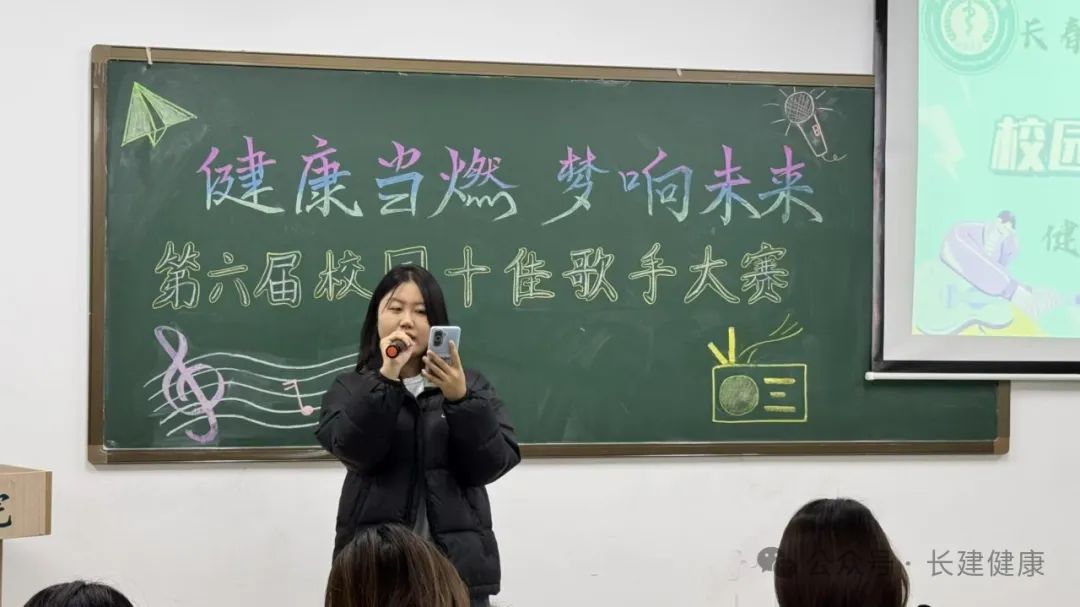 健康当燃 梦响未来
第六届校园十佳歌手大赛
长春
校园
健
公众号·长建健康